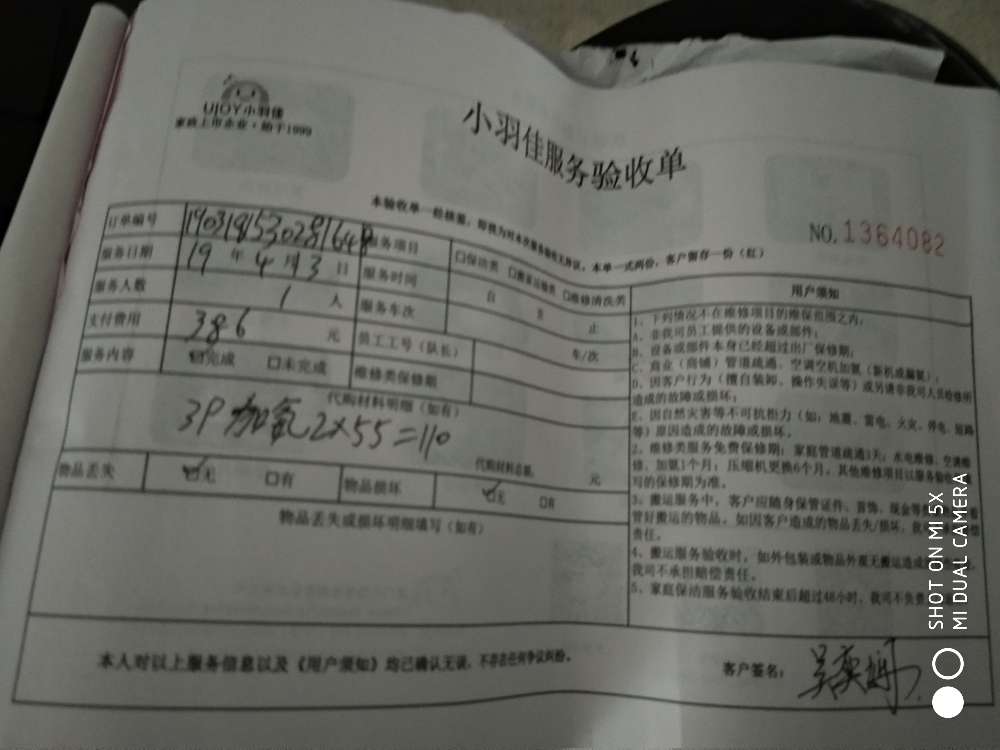 UJOY小羽佳
家政上市企业·始于1999
小羽佳服务验收单
本单一式两份,客户留存一份(红)
NO.1364082
订单编号
服务项目 □保洁类 □搬家运输类 □维修清洗类
服务日期 19年4月3日 服务时间 自 至 止
服务人数 1人 服务车次 车/次
支付费用 386元 员工工号(队长)
服务内容 ☑完成 □未完成 维修类保修期
代购材料明细(如有)
3P加氟2×55=110
代购材料总额: 元
物品丢失 ☑无 □有 物品损坏 ☑无 □有
物品丢失或损坏明细填写(如有)
用户须知
1、下列情况不在维修项目的维保范围之内:
A、非我司员工提供的设备或部件;
B、设备或部件本身已经超过出厂保修期;
C、商业(商铺)管道疏通、空调空机加氟(新机或漏氟);
D、因客户行为(擅自装卸、操作失误等)或另请非我司人员检修所
造成的故障或损坏;
E、因自然灾害等不可抗拒力(如:地震、雷电、火灾、停电、短路
等)原因造成的故障或损坏。
2、维修类服务免费保修期:家庭管道疏通1天;水电维修、空调维
修、加氟1个月;压缩机更换6个月。其他维修项目以服务验收
写的保修期为准。
3、搬运服务中,客户应随身保管证件、首饰、现金等
管好搬运的物品。如因客户造成的物品丢失/损坏,我
责任。
4、搬运服务验收时,如外包装或物品外观无搬运造成
我司不承担赔偿责任。
5、家庭保洁服务验收结束后超过48小时,我司不负责
本人对以上服务信息以及《用户须知》均已确认无误,不存在任何争议纠纷。
客户签名:
SHOT ON MI 5X
MI DUAL CAMERA